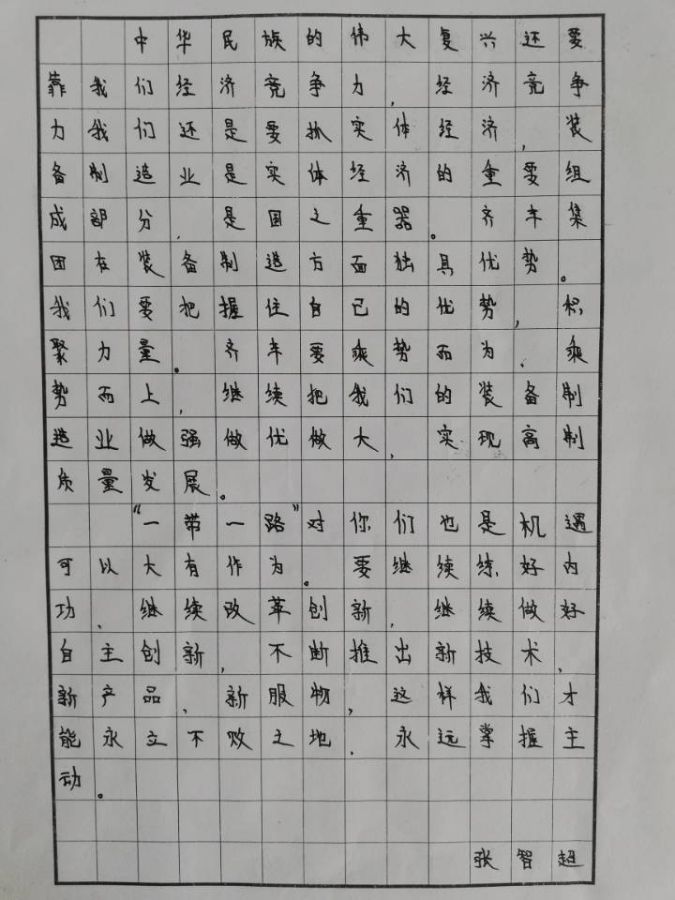 中华民族的伟大复兴还要
靠我们经济竞争力,经济竞争
力我们还是要抓实体经济,装
备制造业是实体经济的重要组
成部分,是国之重器。齐车集
团在装备制造方面独具优势。
我们要把握住自己的优势,积
聚力量。齐车要乘势而为、乘
势而上,继续把我们的装备制
造业做强做优做大,实现高制
质量发展。
“一带一路”对你们也是机遇
可以大有作为。要继续练好内
功,继续改革创新,继续做好
自主创新,不断推出新技术,
新产品,新服物,这样我们才
能永立不败之地,永远掌握主
动。
张智超